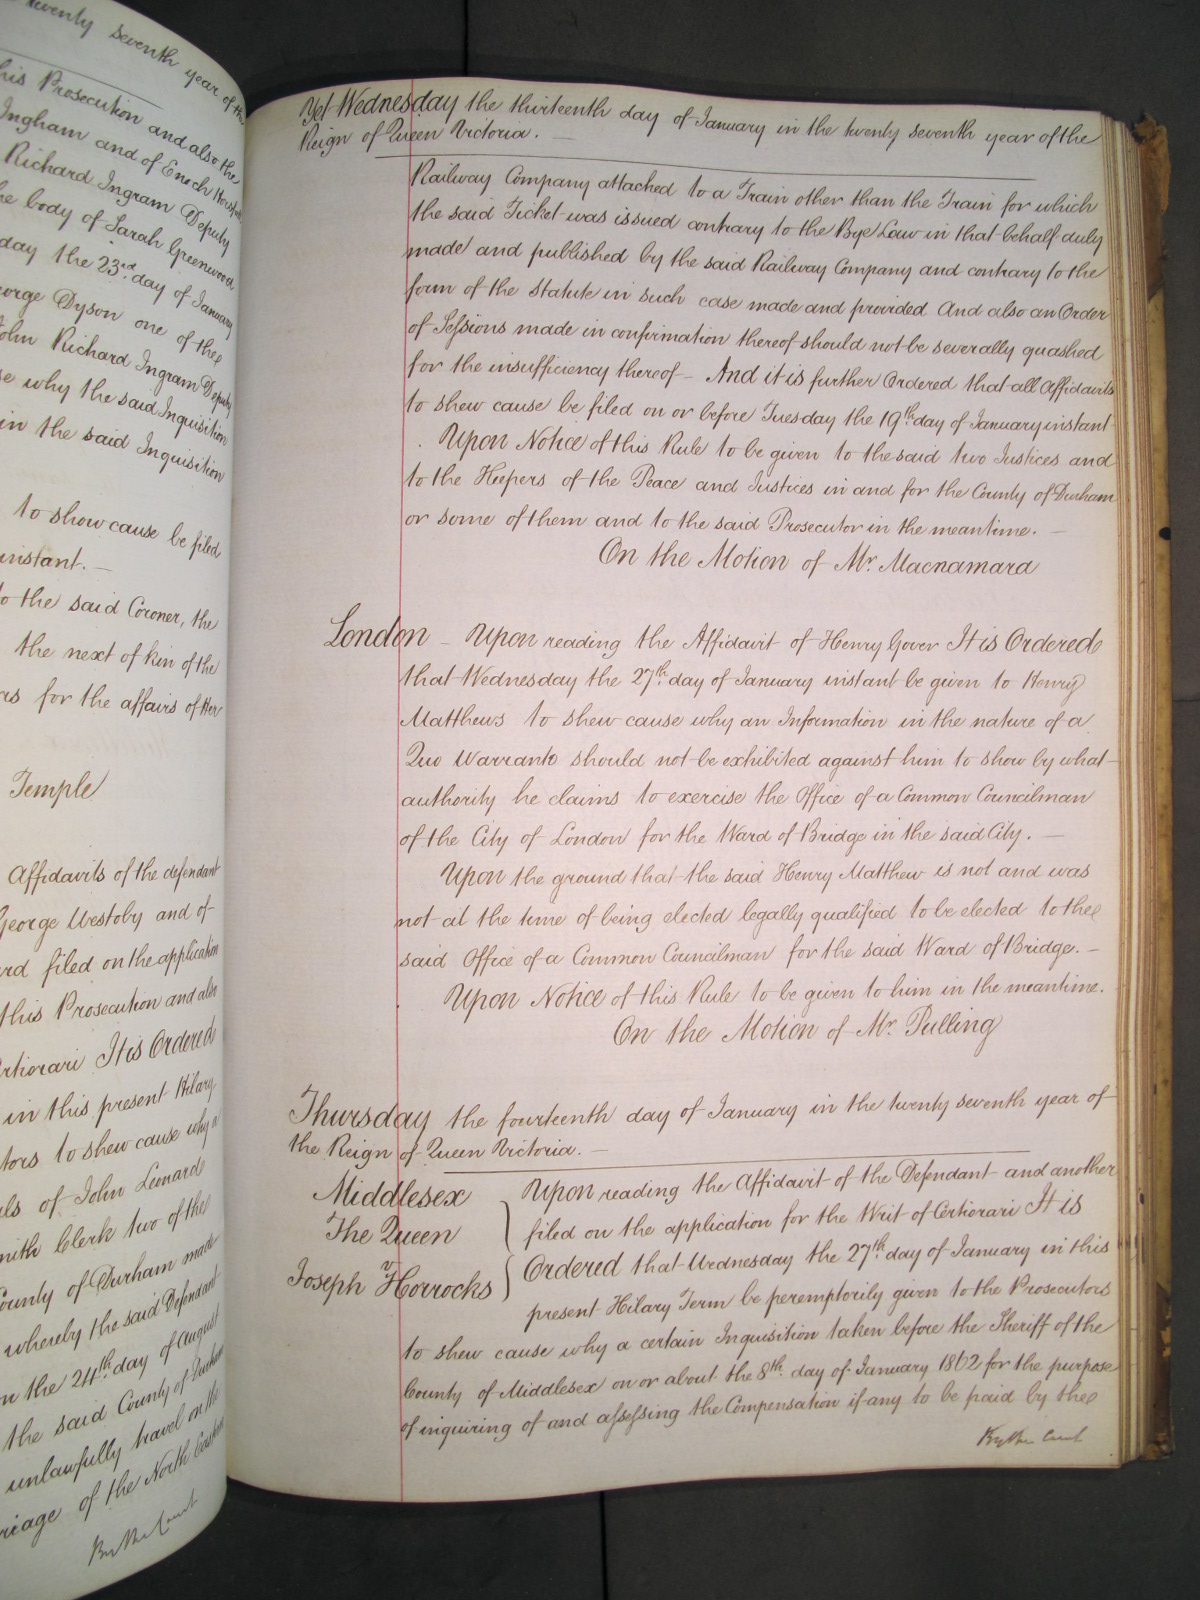 twenty seventh year of the
this Prosecution and also the
Ingham and of Enoch
Richard Ingram Deputy
the body of Sarah Greenwood
day the 23rd day of January
George Dyson one of the
John Richard Ingram Deputy
why the said Inquisition
in the said Inquisition
to show cause be filed
instant. —
to the said Coroner, the
the next of kin of the
for the affairs of Her
Temple
Affidavits of the defendant
George Westoby and of
filed on the application
this Prosecution and also
Certiorari It is Ordered
in this present Hilary
to shew cause why a
of John Leonard
Clerk two of the
County of Durham made
whereby the said Defendant
on the 24th day of August
the said County of Durham
unlawfully travel on the
of the North Eastern
By the Court
Yet Wednesday the thirteenth day of January in the twenty seventh year of the
Reign of Queen Victoria. —
Railway Company attached to a Train other than the Train for which
the said Ticket was issued contrary to the Bye Law in that behalf duly
made and published by the said Railway Company and contrary to the
form of the Statute in such case made and provided And also an Order
of Sessions made in confirmation thereof should not be severally quashed
for the insufficiency thereof — And it is further Ordered that all Affidavits
to shew cause be filed on or before Tuesday the 19th day of January instant
Upon Notice of this Rule to be given to the said two Justices and
to the Keepers of the Peace and Justices in and for the County of Durham
or some of them and to the said Prosecutor in the meantime. —
On the Motion of Mr. Macnamara
London — Upon reading the Affidavit of Henry Gover It is Ordered
that Wednesday the 27th day of January instant be given to Henry
Matthews to shew cause why an Information in the nature of a
Quo Warranto should not be exhibited against him to show by what
authority he claims to exercise the Office of a Common Councilman
of the City of London for the Ward of Bridge in the said City. —
Upon the ground that the said Henry Matthew is not and was
not at the time of being elected legally qualified to be elected to the
said Office of a Common Councilman for the said Ward of Bridge. —
Upon Notice of this Rule to be given to him in the meantime.
On the Motion of Mr. Pulling
Thursday the fourteenth day of January in the twenty seventh year of
the Reign of Queen Victoria. —
Middlesex
The Queen
v
Joseph Horrocks
Upon reading the Affidavit of the Defendant and another
filed on the application for the Writ of Certiorari It is
Ordered that Wednesday the 27th day of January in this
present Hilary Term be peremptorily given to the Prosecutors
to shew cause why a certain Inquisition taken before the Sheriff of the
County of Middlesex on or about the 8th day of January 1862 for the purpose
of inquiring of and assessing the Compensation if any to be paid by the
By the Court